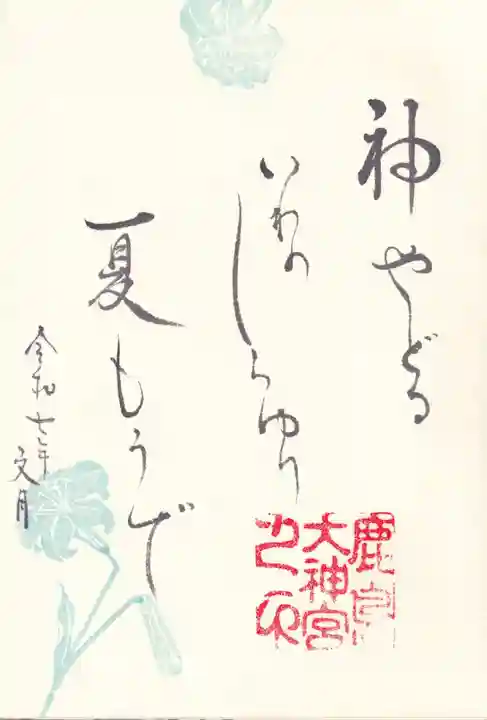 神やどる
いわの
しらゆり
夏もうで
令和七年
文月
鹿島
大神宮
之印